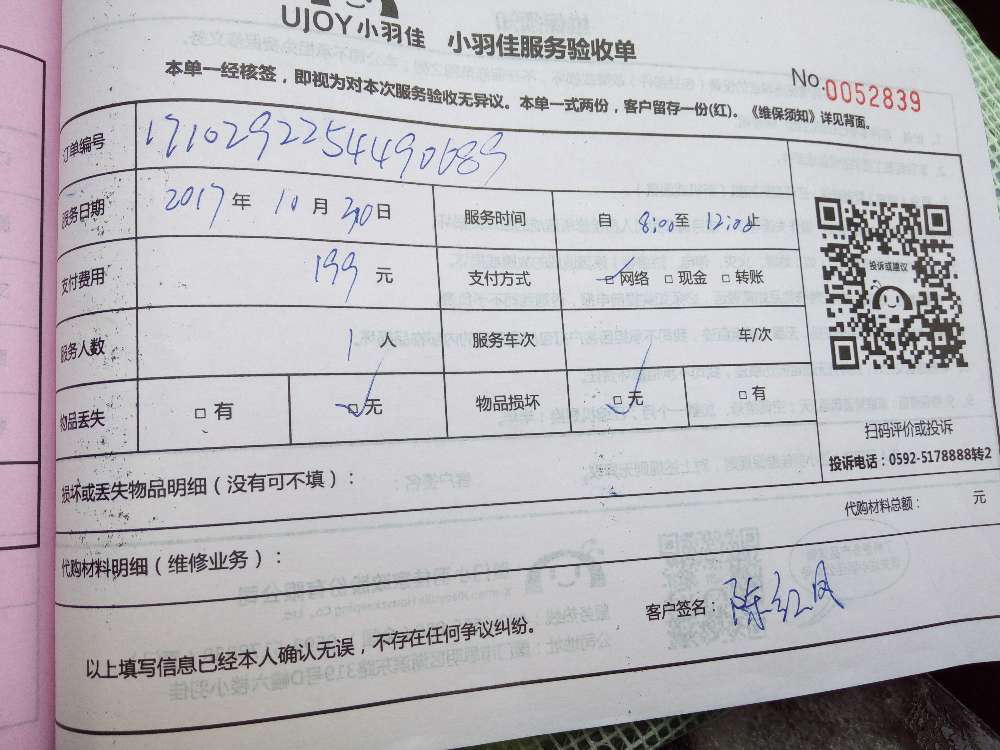 UJOY小羽佳 小羽佳服务验收单
No.0052839
本单一经核签，即视为对本次服务验收无异议。本单一式两份，客户留存一份(红)。《维保须知》详见背面。
订单编号 1710292254490689
服务日期 2017年10月30日 服务时间 自8:00至12:00止
支付费用 199元 支付方式 □网络 □现金 □转账
服务人数 1人 服务车次 车/次
物品丢失 □有 □无 物品损坏 □无 □有
投诉或建议
扫码评价或投诉
投诉电话：0592-5178888转2
损坏或丢失物品明细（没有可不填）：
代购材料总额： 元
代购材料明细（维修业务）：
客户签名：陈红凤
以上填写信息已经本人确认无误，不存在任何争议纠纷。